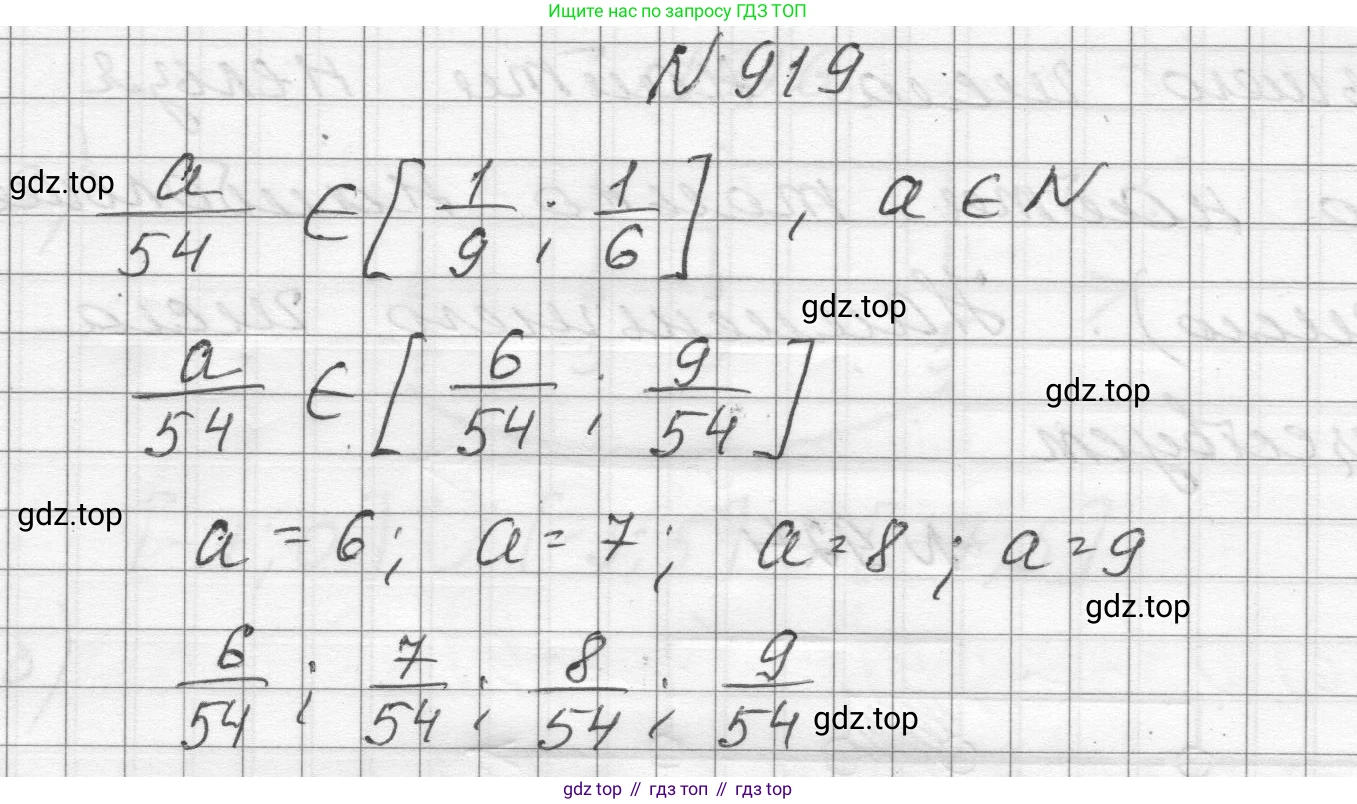 Ищите нас по запросу ГДЗ ТОП
N 919
a/54 ∈ [1/9 ; 1/6] , a ∈ N
gdz.top
gdz.top
a/54 ∈ [6/54 ; 9/54]
gdz.top
gdz.top
a = 6; a = 7; a = 8; a = 9
gdz.top
6/54 ; 7/54 ; 8/54 ; 9/54
gdz.top
gdz top // гдз топ // gdz top